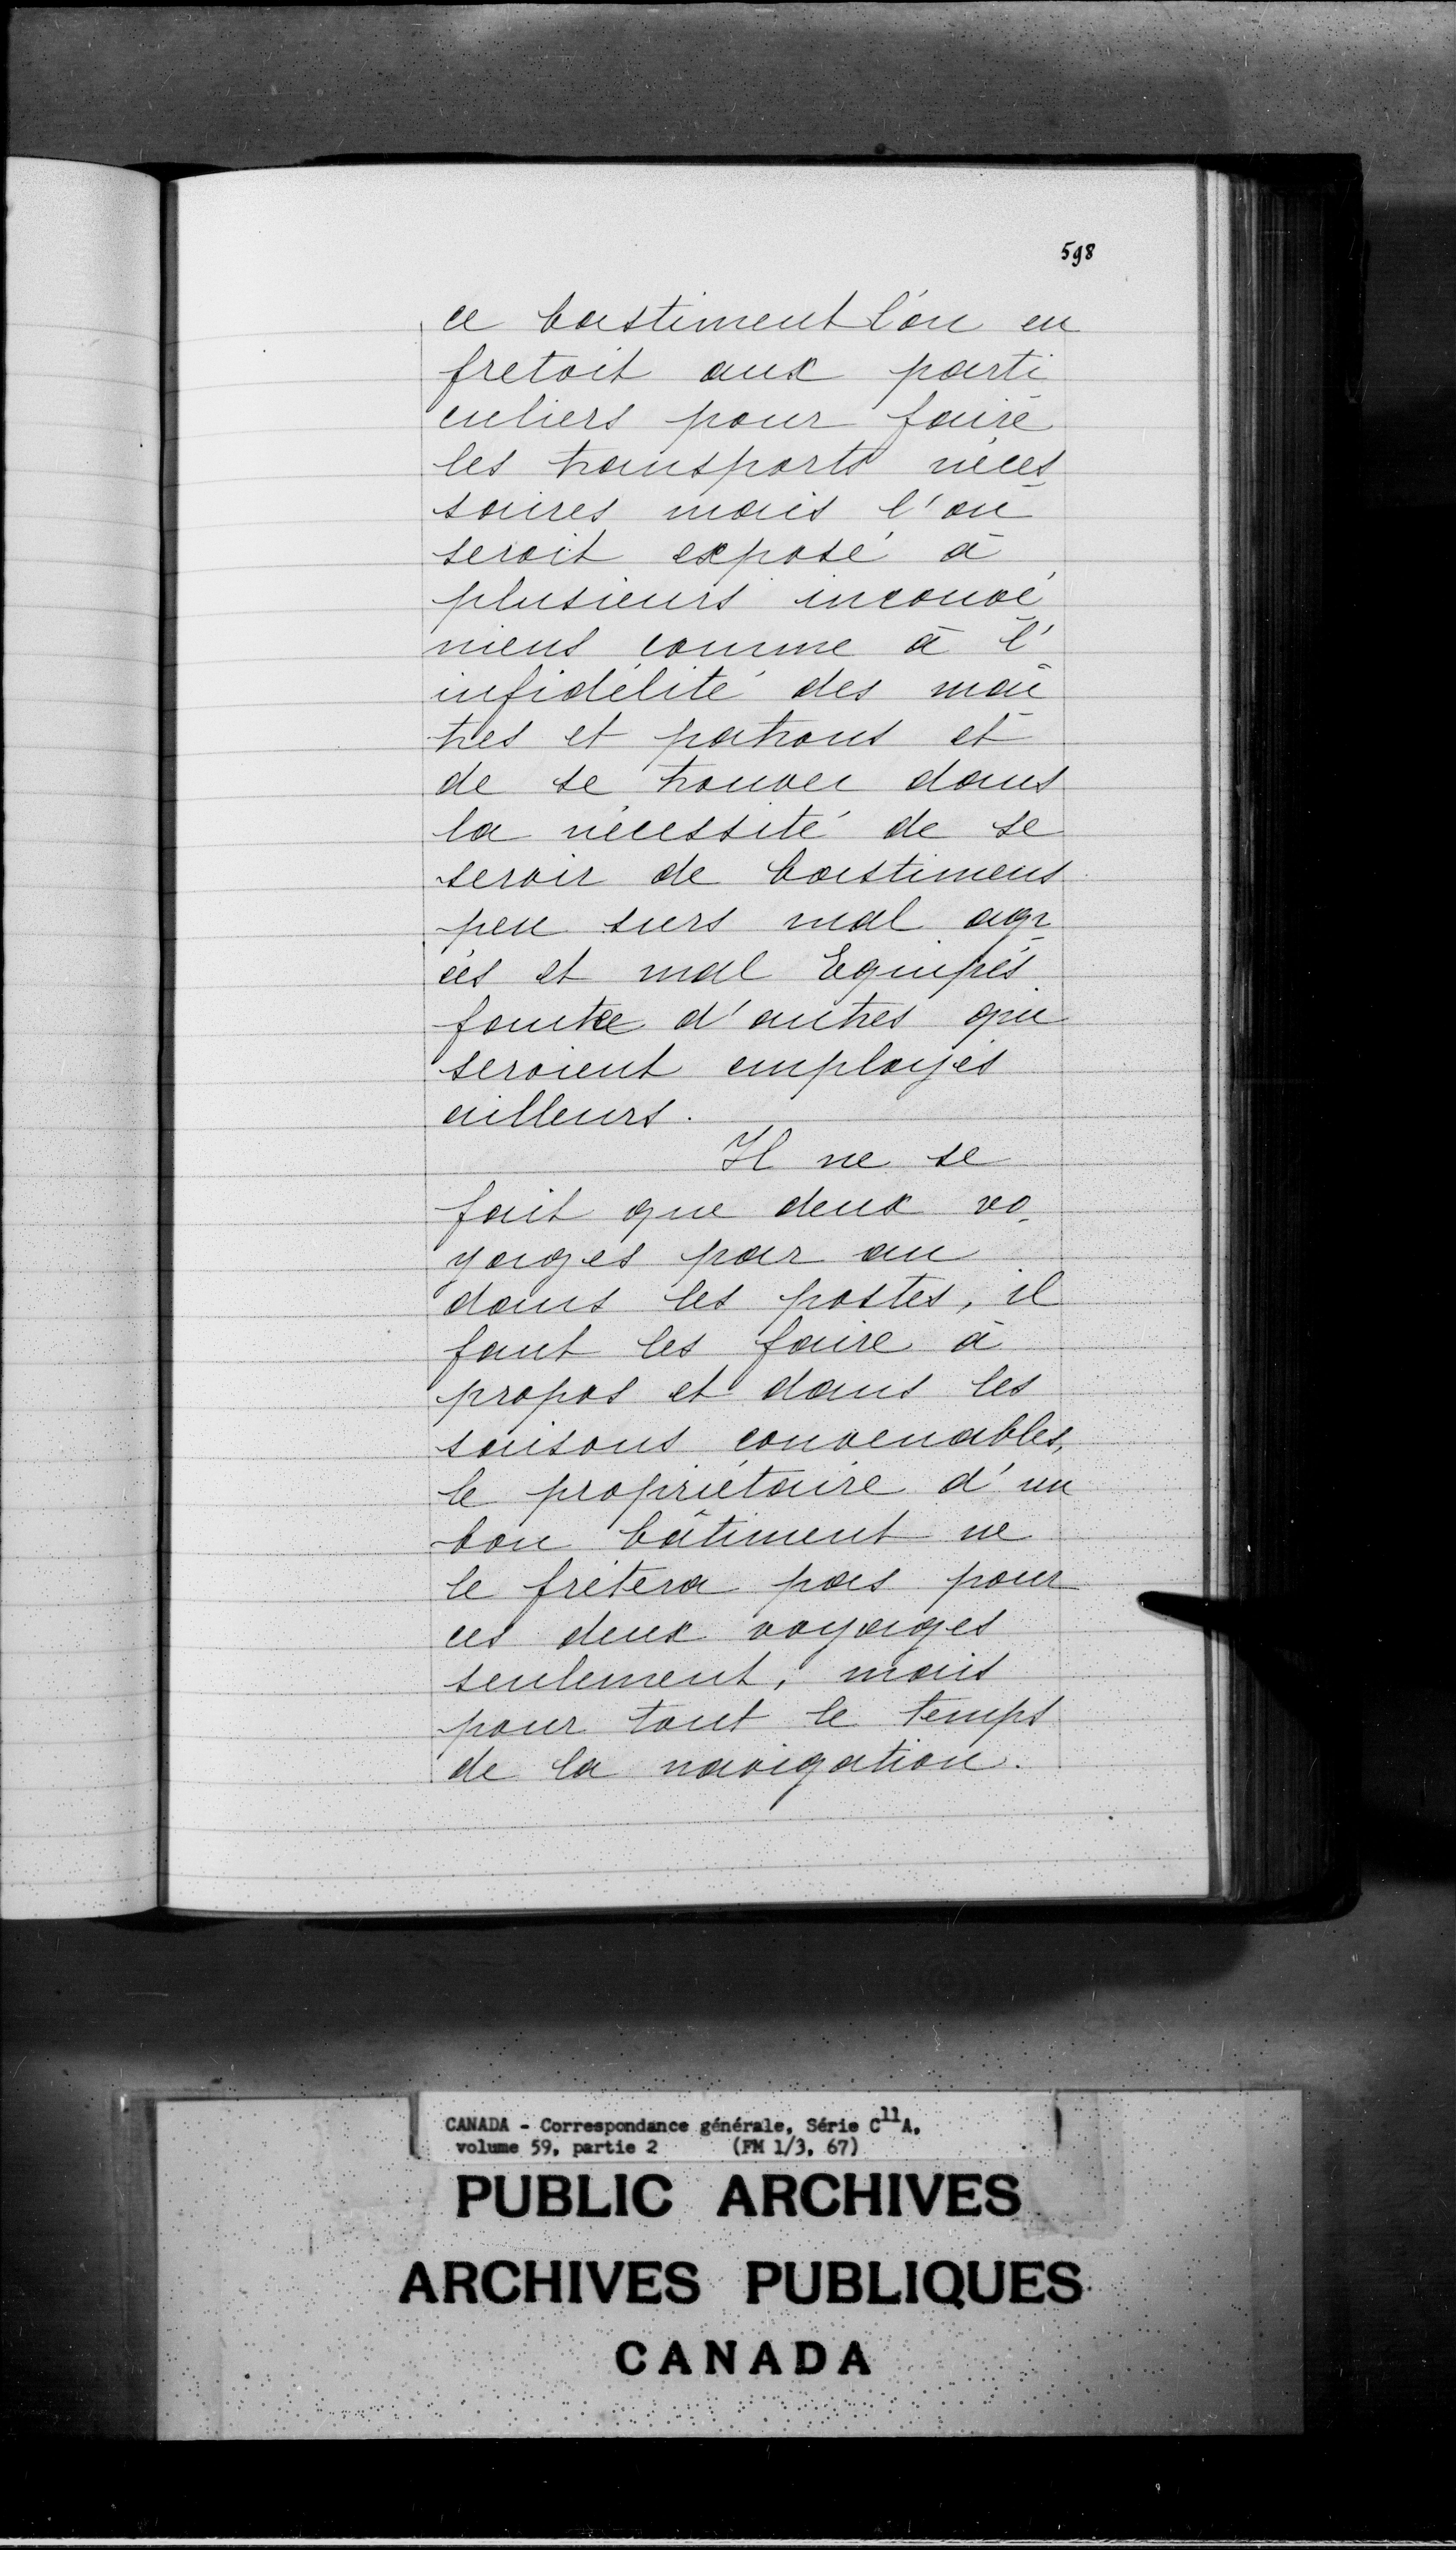 598
ce bastiment l'on en
fretoit aux parti
culiers pour faire
les transports néces
saires mais l'on
seroit exposé à
plusieurs inconvé
niens comme à l'
infidélité des maî
tres et patrons et
de se trouver dans
la nécessité de se
servir de bastimens
peu surs mal agr
éés et mal Equipés
faute d'autres qui
seroient employés
ailleurs.
Il ne se
fait que deux vo
yages par an
dans les postes, il
faut les faire à
propos et dans les
saisons convenables,
le propriétaire d'un
bon bâtiment ne
le frètera pas pour
ces deux voyages
seulement, mais
pour tout le temps
de la navigation.
CANADA - Correspondance générale, Série C11A,
volume 59, partie 2 (FM 1/3, 67)
PUBLIC ARCHIVES
ARCHIVES PUBLIQUES
CANADA